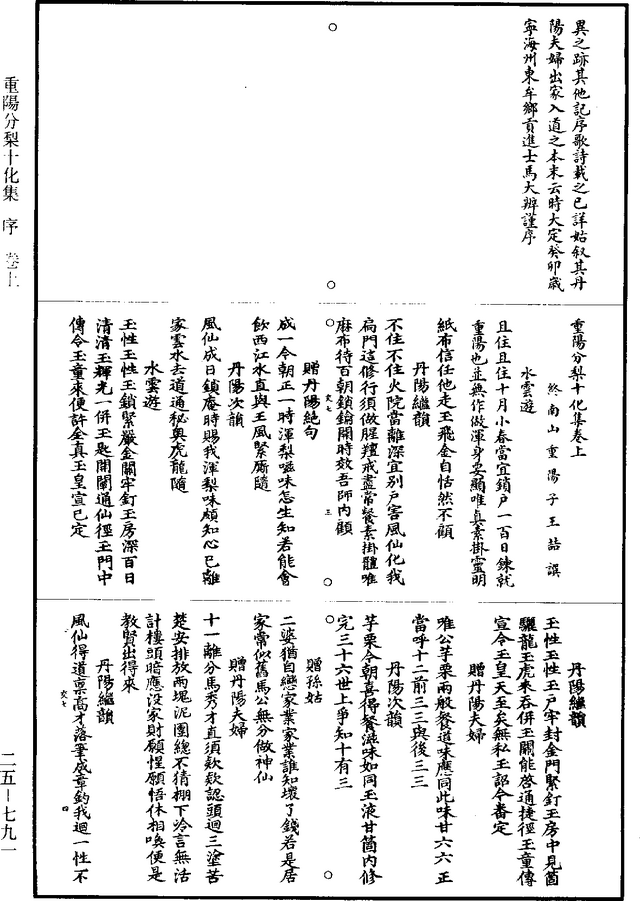 重陽分梨十化集 序 卷上
二五—七九一
異之跡其他記序歌詩載之已詳姑叙其丹
陽夫婦出家入道之本末云時大定癸卯歲
寧海州東牟鄉貢進士馬大辨謹序
重陽分梨十化集卷上
終南山重陽子王嚞譔
水雲遊
且住且住十月小春當宜鎖戶一百日鍊就
重陽也並無作做渾身要顯唯真素掛靈明
紙布信任他走玉飛金自恬然不顧
丹陽繼韻
不住不住火院當離深宜別戶害風仙化我
扃門這修行須做腥羶戒盡常餐素掛體唯
麻布待百朝鎖鑰開時效吾師內顧
交七
三
贈丹陽絕句
成一今朝正一時渾梨滋味怎生知若能會
飲西江水直與王風緊廝隨
丹陽次韻
風仙成日鎖庵時賜我渾梨味頗知心已離
家雲水去道通秘奧虎龍隨
水雲遊
玉性玉性玉鎖緊嚴金關牢釘玉房深百日
清清玉輝光一併玉匙開闡通仙徑玉門中
傳令玉童來便許全真玉皇宣已定
丹陽繼韻
玉性玉性玉戶牢封金門緊釘玉房中見箇
驪龍玉虎來吞併玉關能啓通捷徑玉童傳
宣令玉皇天至矣無私玉詔今番定
贈丹陽夫婦
唯公芋栗兩般餐道味應同此味甘六六正
當呼十二前三三與後三三
丹陽次韻
芋栗今朝喜得餐滋味如同玉液甘箇內修
完三十六世上爭知十有三
贈孫姑
二婆猶自戀家業家業誰知壞了錢若是居
家常似舊馬公無分做神仙
贈丹陽夫婦
十一離分馬秀才直須欸欸認頭迴三塗苦
楚安排放兩塊泥團總不猜棚下冷言無活
計樓頭暗應沒家財願惺願悟休相喚便是
教賢出得來
丹陽繼韻
風仙得道稟高才落筆成章釣我迴一性不
交七
四